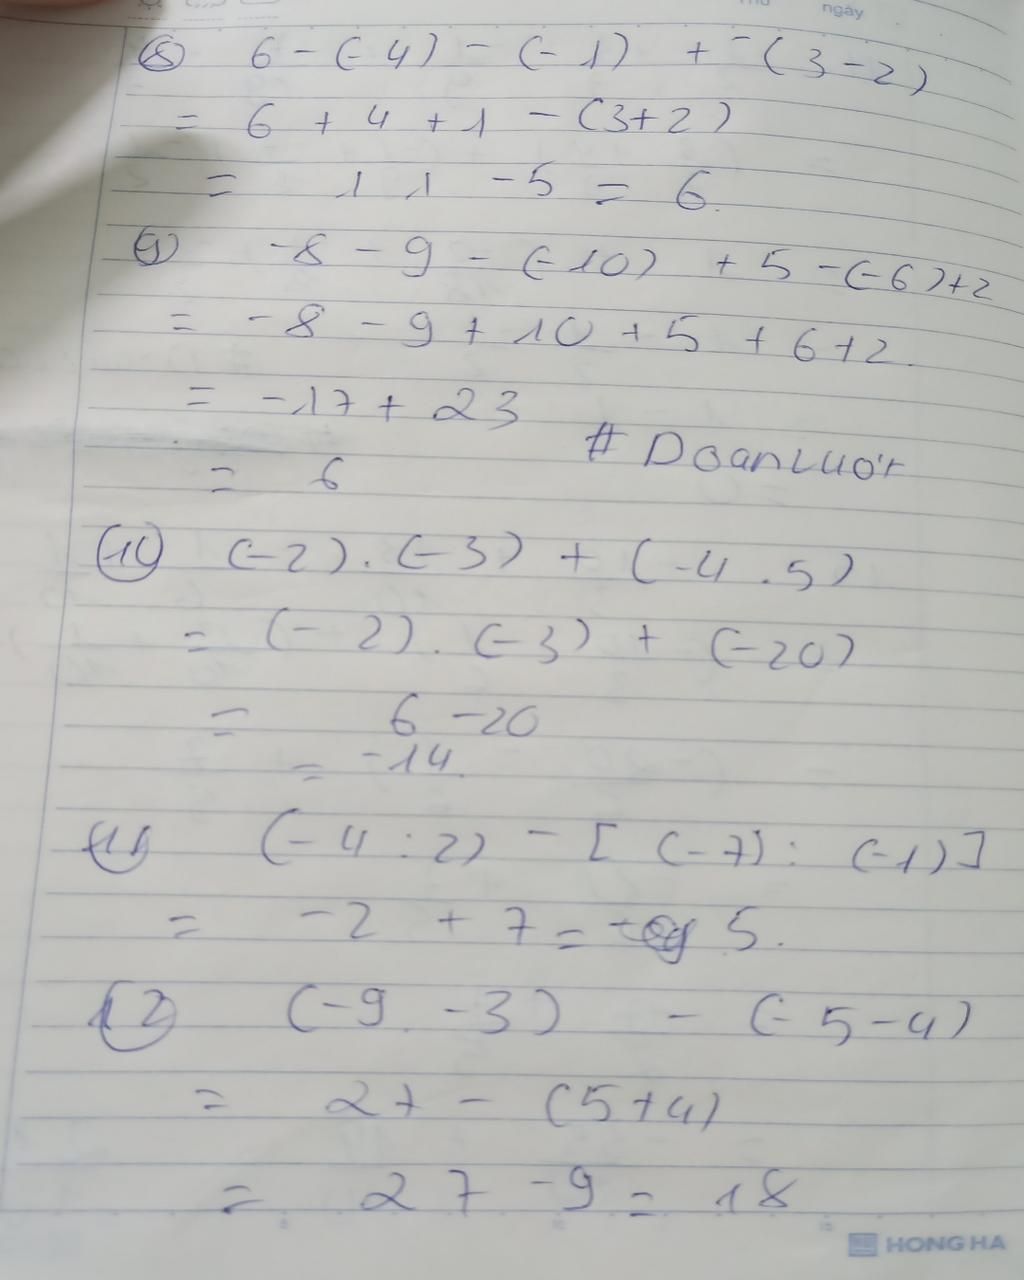 ngày
⑧ 6 - (-4) - (-1) + -(3-2)
= 6 + 4 + 1 - (3+2)
= 11 - 5 = 6.
⑨ -8 - 9 - (-10) + 5 - (-6) + 2
= -8 - 9 + 10 + 5 + 6 + 2.
= -17 + 23
# Doanlướt
= 6
⑩ (-2) . (-3) + (-4 . 5)
= (-2) . (-3) + (-20)
= 6 - 20
= -14.
⑪ (-4 : 2) - [(-7) : (-1)]
= -2 + 7 = 5.
⑫ (-9 . -3) - (-5-4)
= 27 - (5+4)
= 27 - 9 = 18
HONG HA